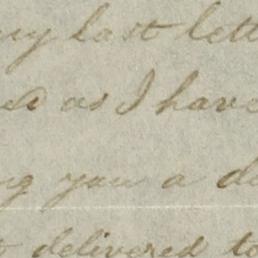 my last lett
ed as I have
ng you a d
t delivered to